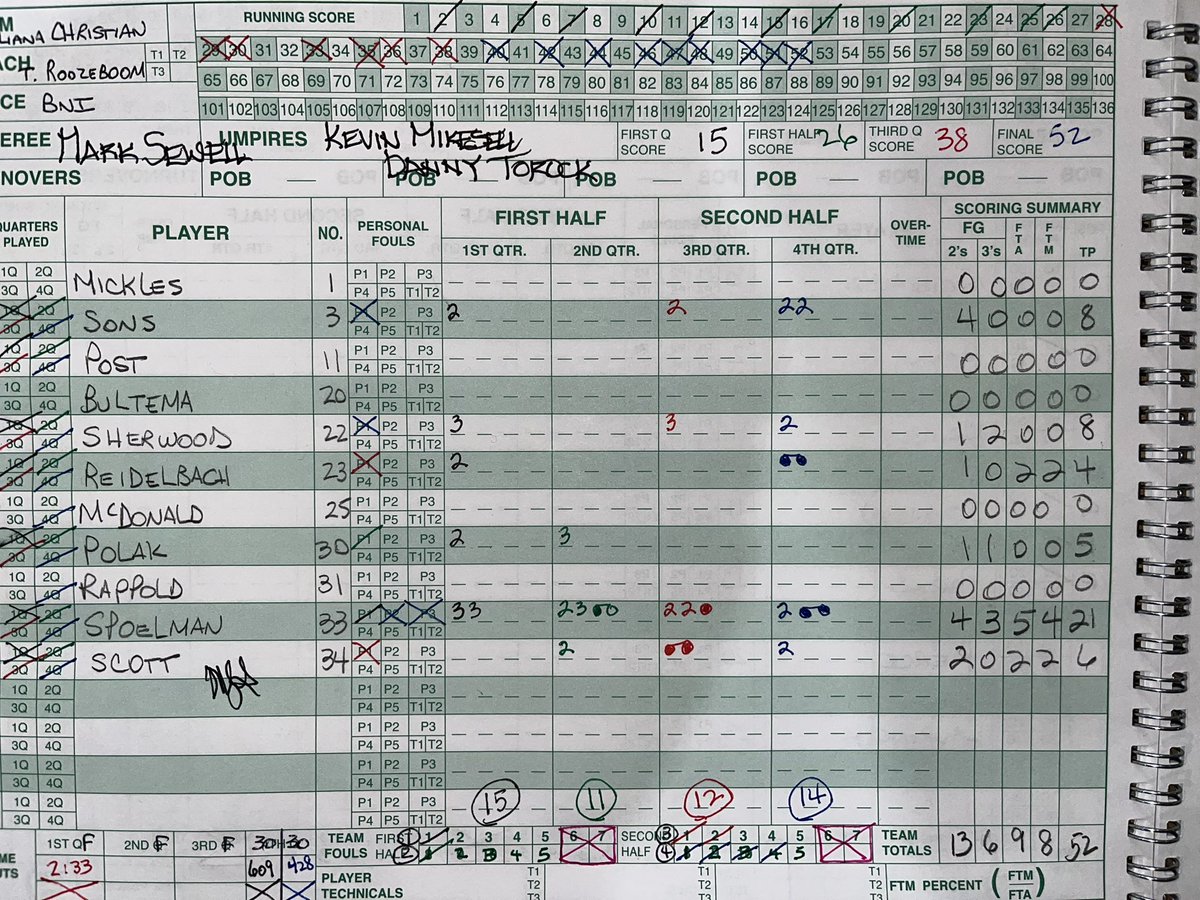 M RUNNING SCORE 1 2 3 4 5 6 7 8 9 10 11 12 13 14 15 16 17 18 19 20 21 22 23 24 25 26 27 28
LIANA CHRISTIAN
T1 T2 29 30 31 32 33 34 35 36 37 38 39 40 41 42 43 44 45 46 47 48 49 50 51 52 53 54 55 56 57 58 59 60 61 62 63 64
ACH T. ROOZEBOOM T3 65 66 67 68 69 70 71 72 73 74 75 76 77 78 79 80 81 82 83 84 85 86 87 88 89 90 91 92 93 94 95 96 97 98 99 100
CE BNI 101 102 103 104 105 106 107 108 109 110 111 112 113 114 115 116 117 118 119 120 121 122 123 124 125 126 127 128 129 130 131 132 133 134 135 136
EREE MARK SEWELL UMPIRES KEVIN MIKESELL DANNY TOROCK FIRST Q SCORE 15 FIRST HALF SCORE 26 THIRD Q SCORE 38 FINAL SCORE 52
NOVERS POB — POB — POB — POB — POB —
QUARTERS PLAYED PLAYER NO. PERSONAL FOULS FIRST HALF SECOND HALF OVER-TIME SCORING SUMMARY
1ST QTR. 2ND QTR. 3RD QTR. 4TH QTR. FG 2's 3's FTA FTM TP
1Q 2Q 3Q 4Q MICKLES 1 P1 P2 P3 P4 P5 T1 T2 0 0 0 0 0
1Q 2Q 3Q 4Q SONS 3 P1 P2 P3 P4 P5 T1 T2 2 2 22 4 0 0 0 8
1Q 2Q 3Q 4Q POST 11 P1 P2 P3 P4 P5 T1 T2 0 0 0 0 0
1Q 2Q 3Q 4Q BULTEMA 20 P1 P2 P3 P4 P5 T1 T2 0 0 0 0 0
1Q 2Q 3Q 4Q SHERWOOD 22 P1 P2 P3 P4 P5 T1 T2 3 3 2 1 2 0 0 8
1Q 2Q 3Q 4Q REIDELBACH 23 P1 P2 P3 P4 P5 T1 T2 2 1 0 2 2 4
1Q 2Q 3Q 4Q McDONALD 25 P1 P2 P3 P4 P5 T1 T2 0 0 0 0 0
1Q 2Q 3Q 4Q POLAK 30 P1 P2 P3 P4 P5 T1 T2 2 3 1 1 0 0 5
1Q 2Q 3Q 4Q RAPPOLD 31 P1 P2 P3 P4 P5 T1 T2 0 0 0 0 0
1Q 2Q 3Q 4Q SPOELMAN 33 P1 P2 P3 P4 P5 T1 T2 33 23 22 2 4 3 5 4 21
1Q 2Q 3Q 4Q SCOTT 34 P1 P2 P3 P4 P5 T1 T2 2 2 2 0 2 2 6
1Q 2Q 3Q 4Q P1 P2 P3 P4 P5 T1 T2
1Q 2Q 3Q 4Q P1 P2 P3 P4 P5 T1 T2
1Q 2Q 3Q 4Q P1 P2 P3 P4 P5 T1 T2
1Q 2Q 3Q 4Q P1 P2 P3 P4 P5 T1 T2 15 11 12 14
1ST QF 2ND F 3RD F 30 30 TEAM FOULS FIRST HALF 1 2 3 4 5 6 7 SECOND HALF 1 2 3 4 5 6 7 TEAM TOTALS 13 6 9 8 52
ME UTS 2:33 609 428 1 2 1 2 3 4 5 3 4 1 2 3 4 5
PLAYER TECHNICALS T1 T2 T3 T1 T2 T3 T1 T2 T3 FTM PERCENT (FTM/FTA)